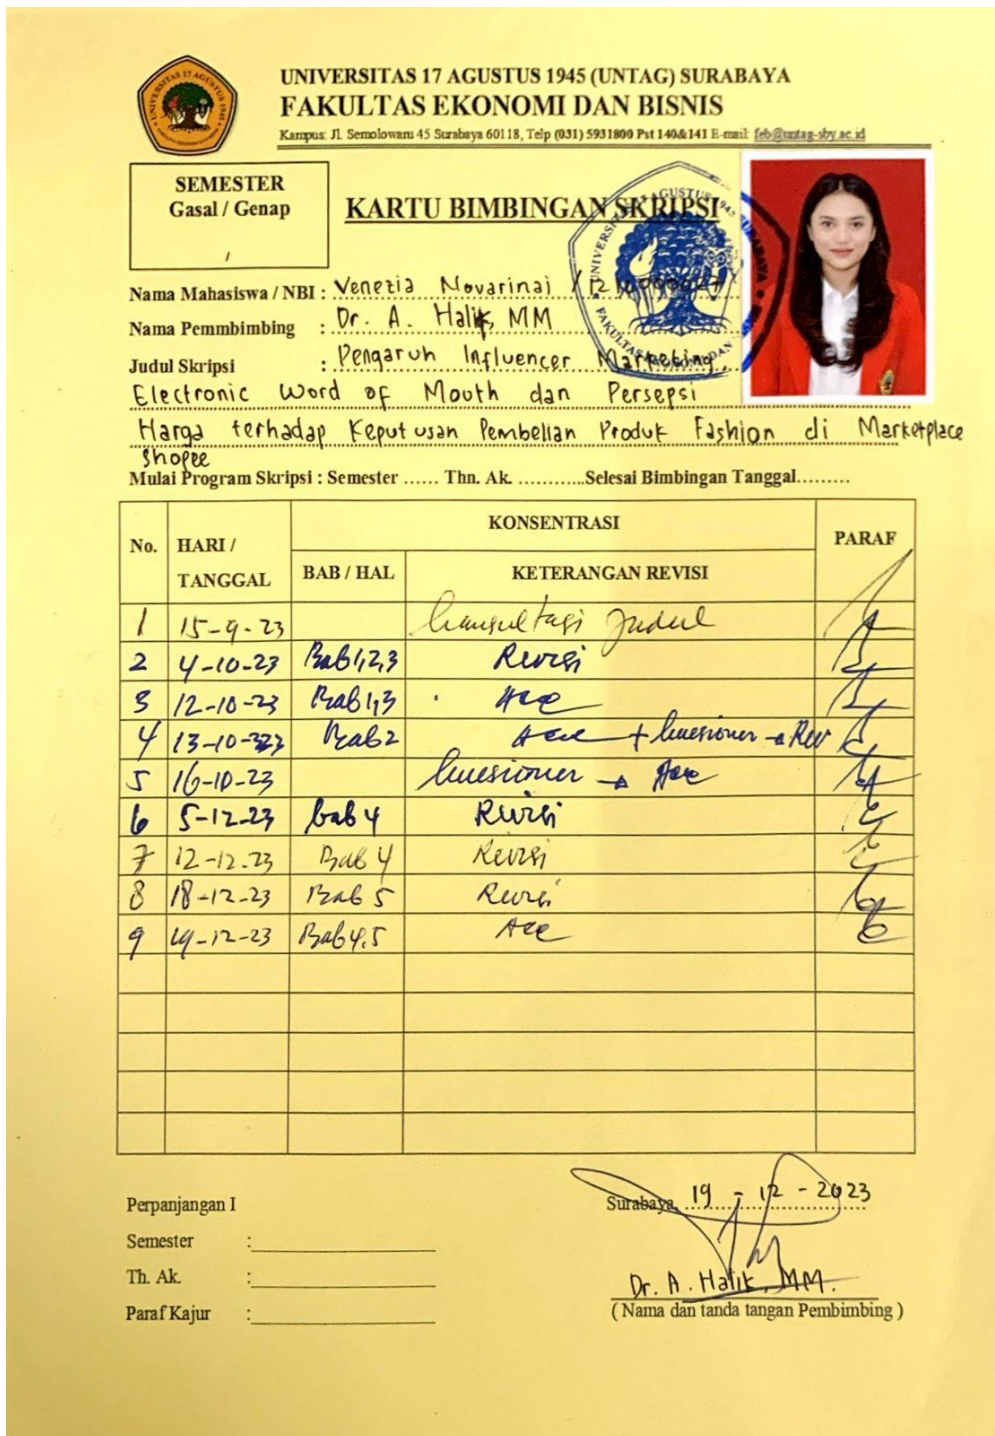 UNIVERSITAS 17 AGUSTUS 1945 (UNTAG) SURABAYA
FAKULTAS EKONOMI DAN BISNIS
Kampus: Jl. Semolowaru 45 Surabaya 60118, Telp (031) 5931800 Pst 140&141 E-mail: feb@untag-sby.ac.id
SEMESTER
Gasal / Genap
/
KARTU BIMBINGAN SKRIPSI
Nama Mahasiswa / NBI : Venezia Novarinai /
Nama Pemmbimbing : Dr. A. Halik, MM
Judul Skripsi : Pengaruh Influencer Marketing,
Electronic Word of Mouth dan Persepsi
Harga terhadap Keputusan Pembelian Produk Fashion di Marketplace
Shopee
Mulai Program Skripsi : Semester ...... Thn. Ak. ............Selesai Bimbingan Tanggal.........
No. HARI / TANGGAL KONSENTRASI PARAF
BAB / HAL KETERANGAN REVISI
1 15-9-23 Konsultasi Judul
2 4-10-23 Bab 1,2,3 Revisi
3 12-10-23 Bab 1,3 Acc
4 13-10-23 Bab 2 Acc + kuesioner → Rev
5 16-10-23 kuesioner → Acc
6 5-12-23 bab 4 Revisi
7 12-12-23 Bab 4 Revisi
8 18-12-23 Bab 5 Revisi
9 19-12-23 Bab 4,5 Acc
Perpanjangan I
Semester :
Th. Ak. :
Paraf Kajur :
Surabaya, 19 - 12 - 2023
Dr. A. Halik, MM.
( Nama dan tanda tangan Pembimbing )